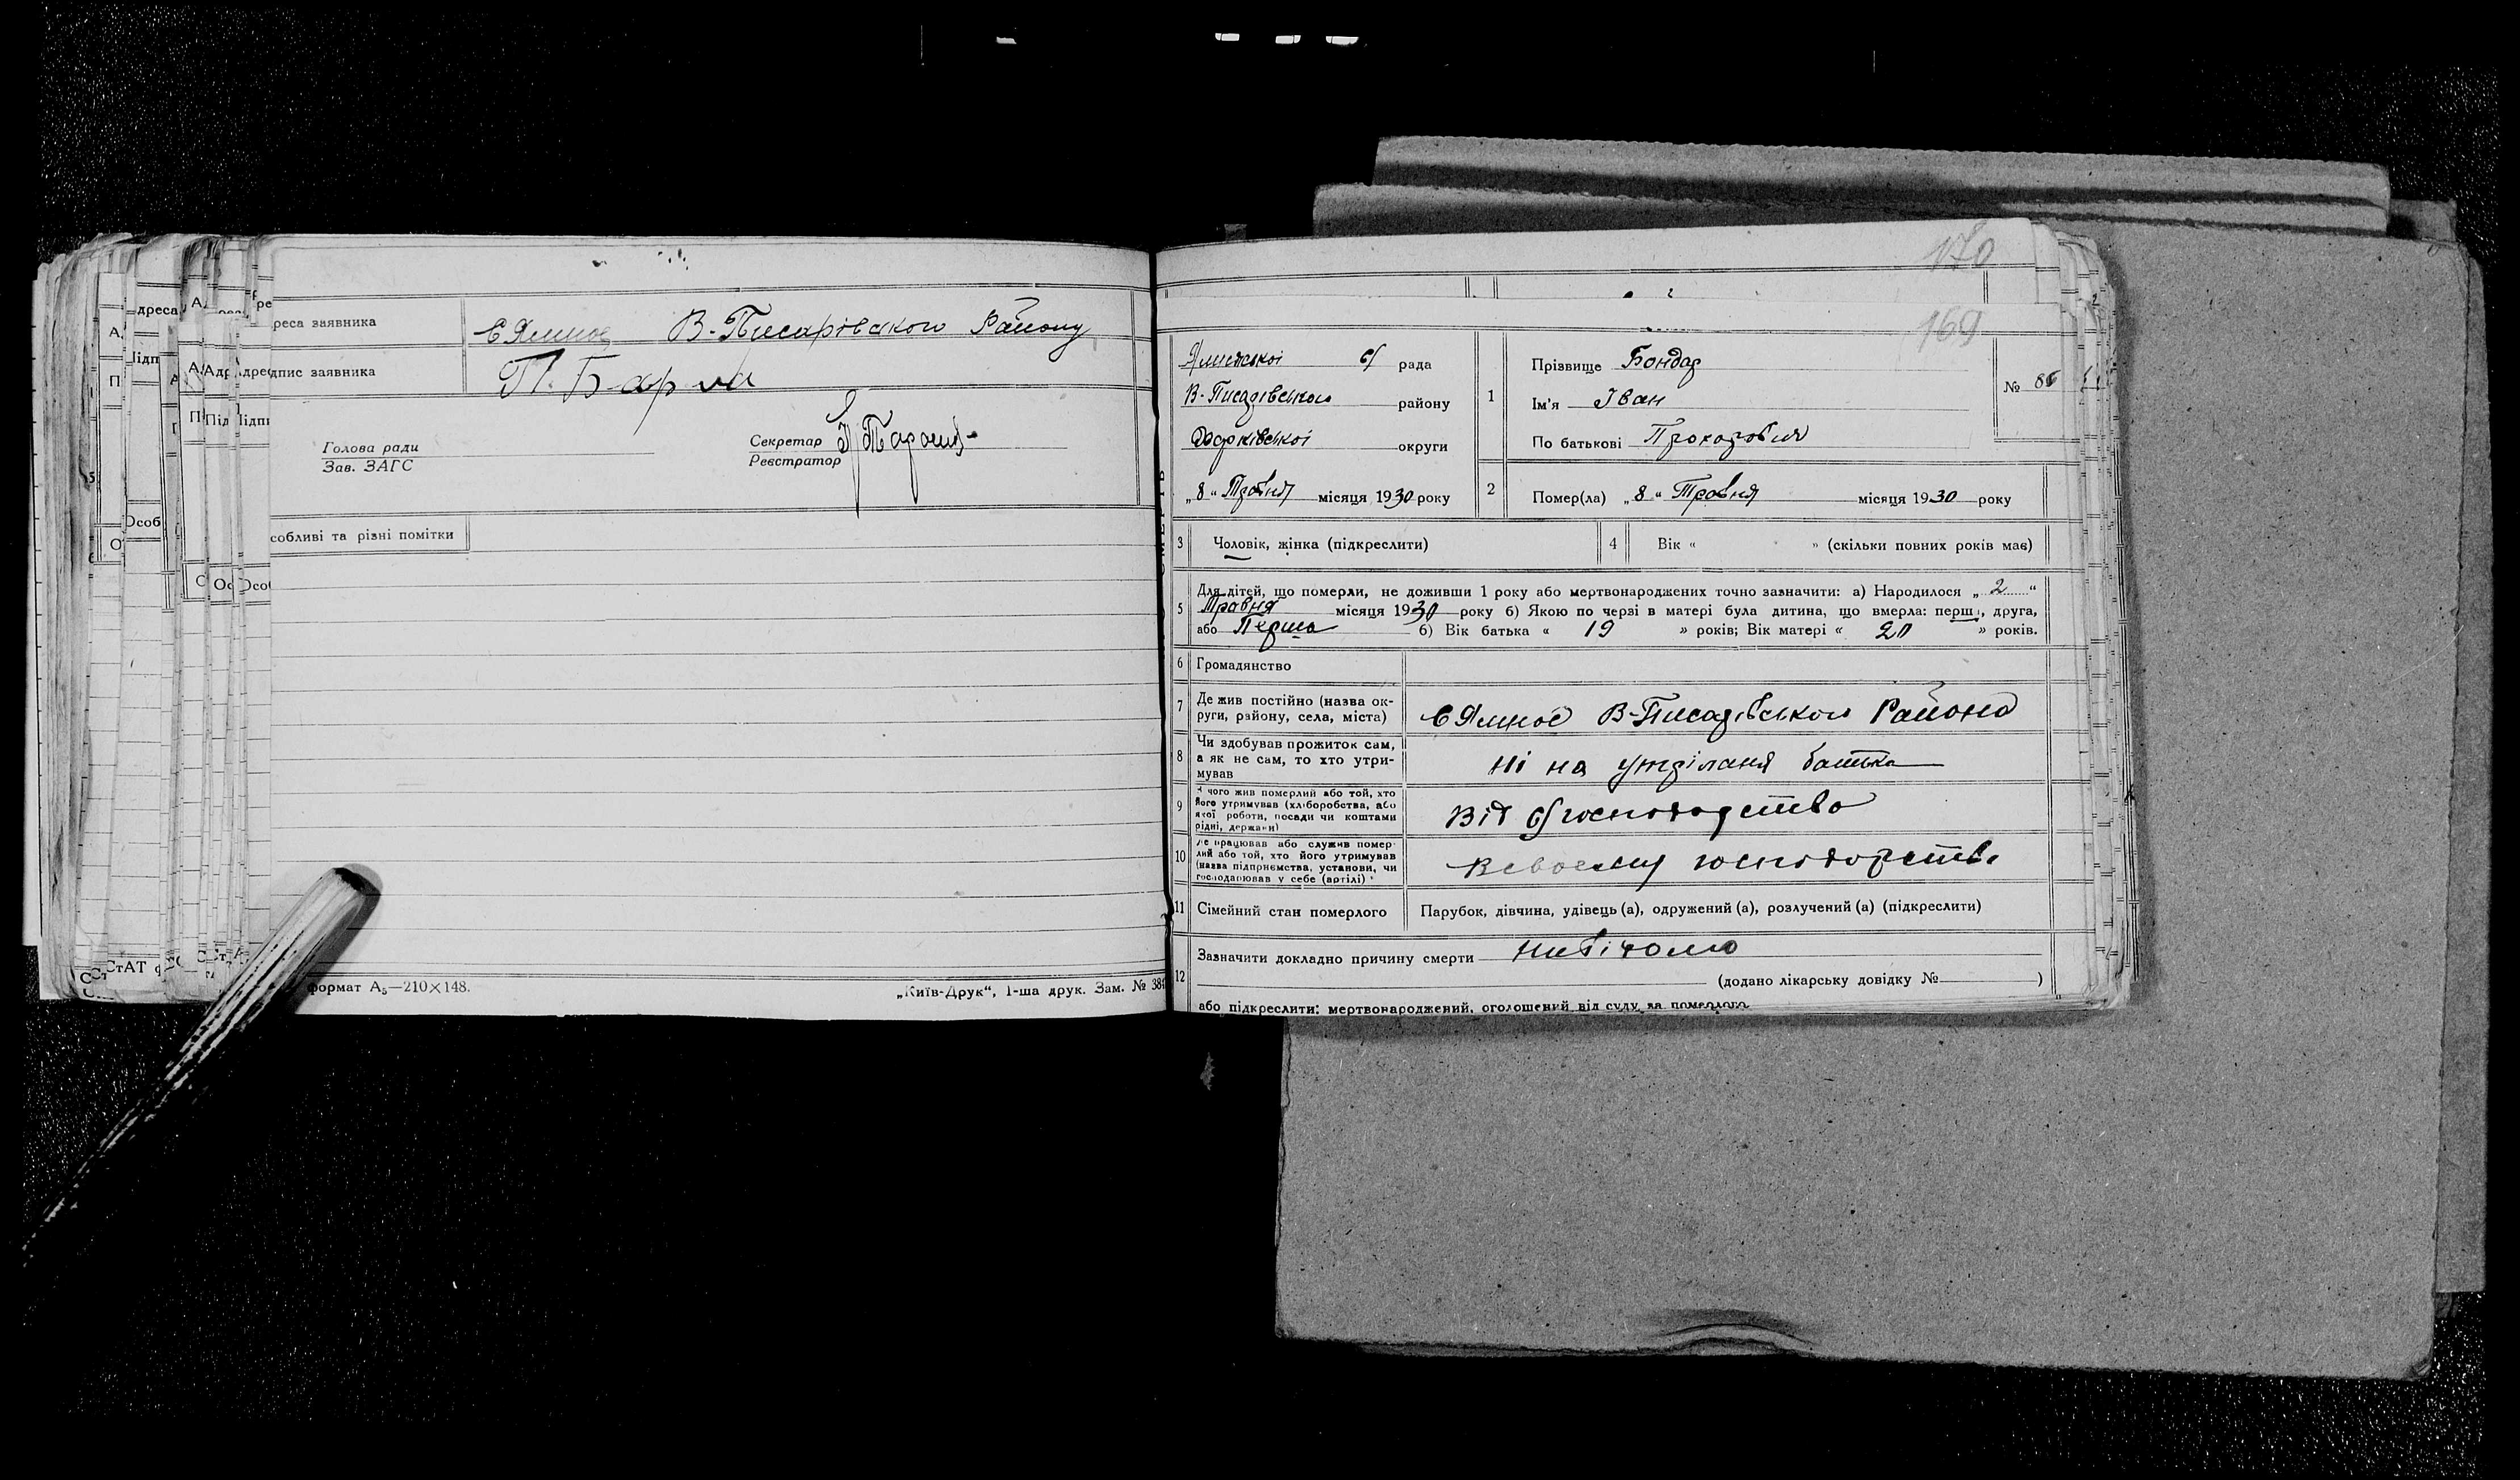 реса заявника с Ямное В-Писарівского Району
дпис заявника П. Барма
Голова ради
Зав. ЗАГС
Секретар
Реєстратор
собливі та різні помітки
формат А₅—210×148.
„Київ-Друк“, 1-ша друк. Зам. № 384
170
169
Ямнської с/ рада
В-Писарівського району
Харківської округи
„8“ Травня місяця 1930 року
1
Прізвище Бондар
Ім'я Іван
По батькові Прохорович
№ 86
2
Помер(ла) „8“ Травня місяця 1930 року
3 Чоловік, жінка (підкреслити)
4 Вік « » (скільки повних років має)
5 Для дітей, що померли, не доживши 1 року або мертвонароджених точно зазначити: а) Народилося „2“
Травня місяця 1930 року б) Якою по черзі в матері була дитина, що вмерла: перш, друга,
або Перша б) Вік батька « 19 » років; Вік матері « 20 » років.
6 Громадянство
7 Де жив постійно (назва ок-
руги, району, села, міста)
с Ямное В-Писарівського Района
8 Чи здобував прожиток сам,
а як не сам, то хто утри-
мував
Ні на утріманя батька
9 З чого жив померлий або той, хто
його утримував (хліборобства, або
якої роботи, посади чи коштами
рідні, держави)
Від с/господарства
10 Де працював або служив помер-
лий або той, хто його утримував
(назва підприємства, установи, чи
господарював у себе (артілі)
Всвоєму господарстві
11 Сімейний стан померлого Парубок, дівчина, удівець (а), одружений (а), розлучений (а) (підкреслити)
12 Зазначити докладно причину смерти Невідомо
(додано лікарську довідку № )
або підкреслити: мертвонароджений, оголошений від суду за померлого